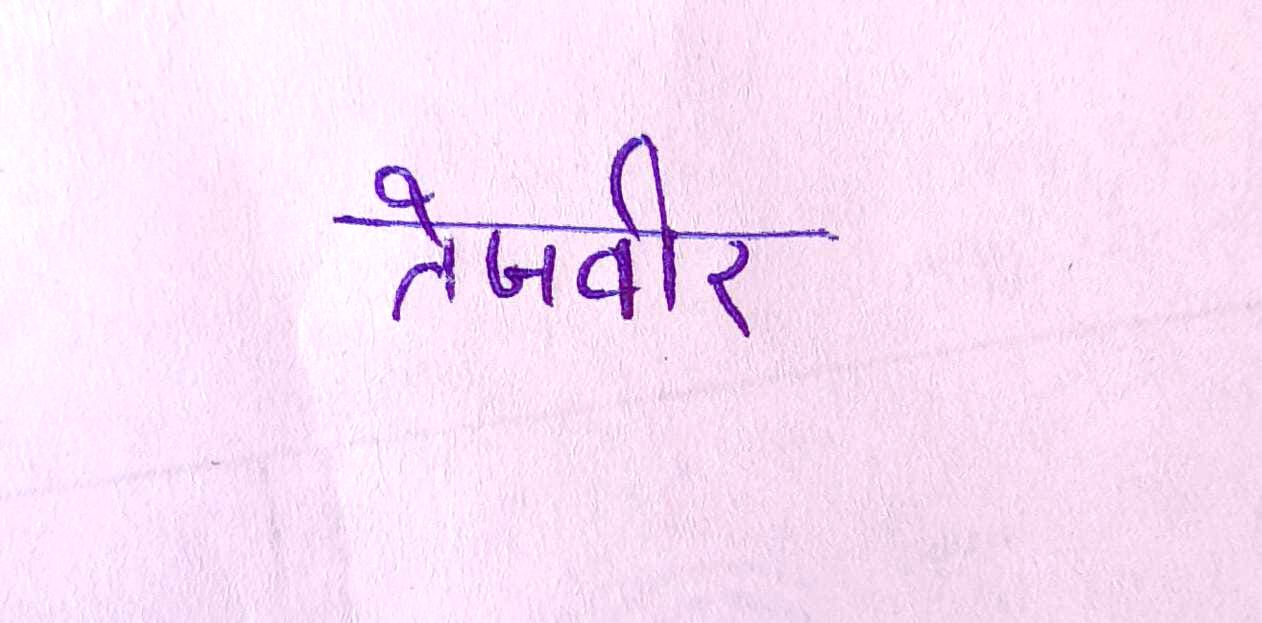 तेजवीर